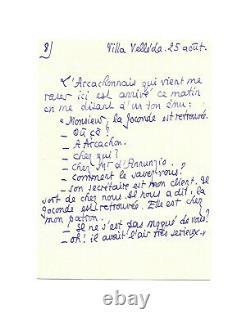 8)
Villa Velléda. 25 août.
L'Arcachonnais qui vient me
raser ici est arrivé ce matin
en me disant d'un ton ému :
"Monsieur, la Joconde est retrouvée.
— Où ça ?
— A Arcachon.
— Chez qui ?
— Chez Mr d'Annunzio.
— Comment le savez-vous ?
— Son secrétaire est mon client. Il
sort de chez nous. Il nous a dit : la
Joconde est retrouvée. Elle est chez
mon patron.
— Il ne s'est pas moqué de vous ?
— Oh ! il avait l'air très sérieux."
ebay